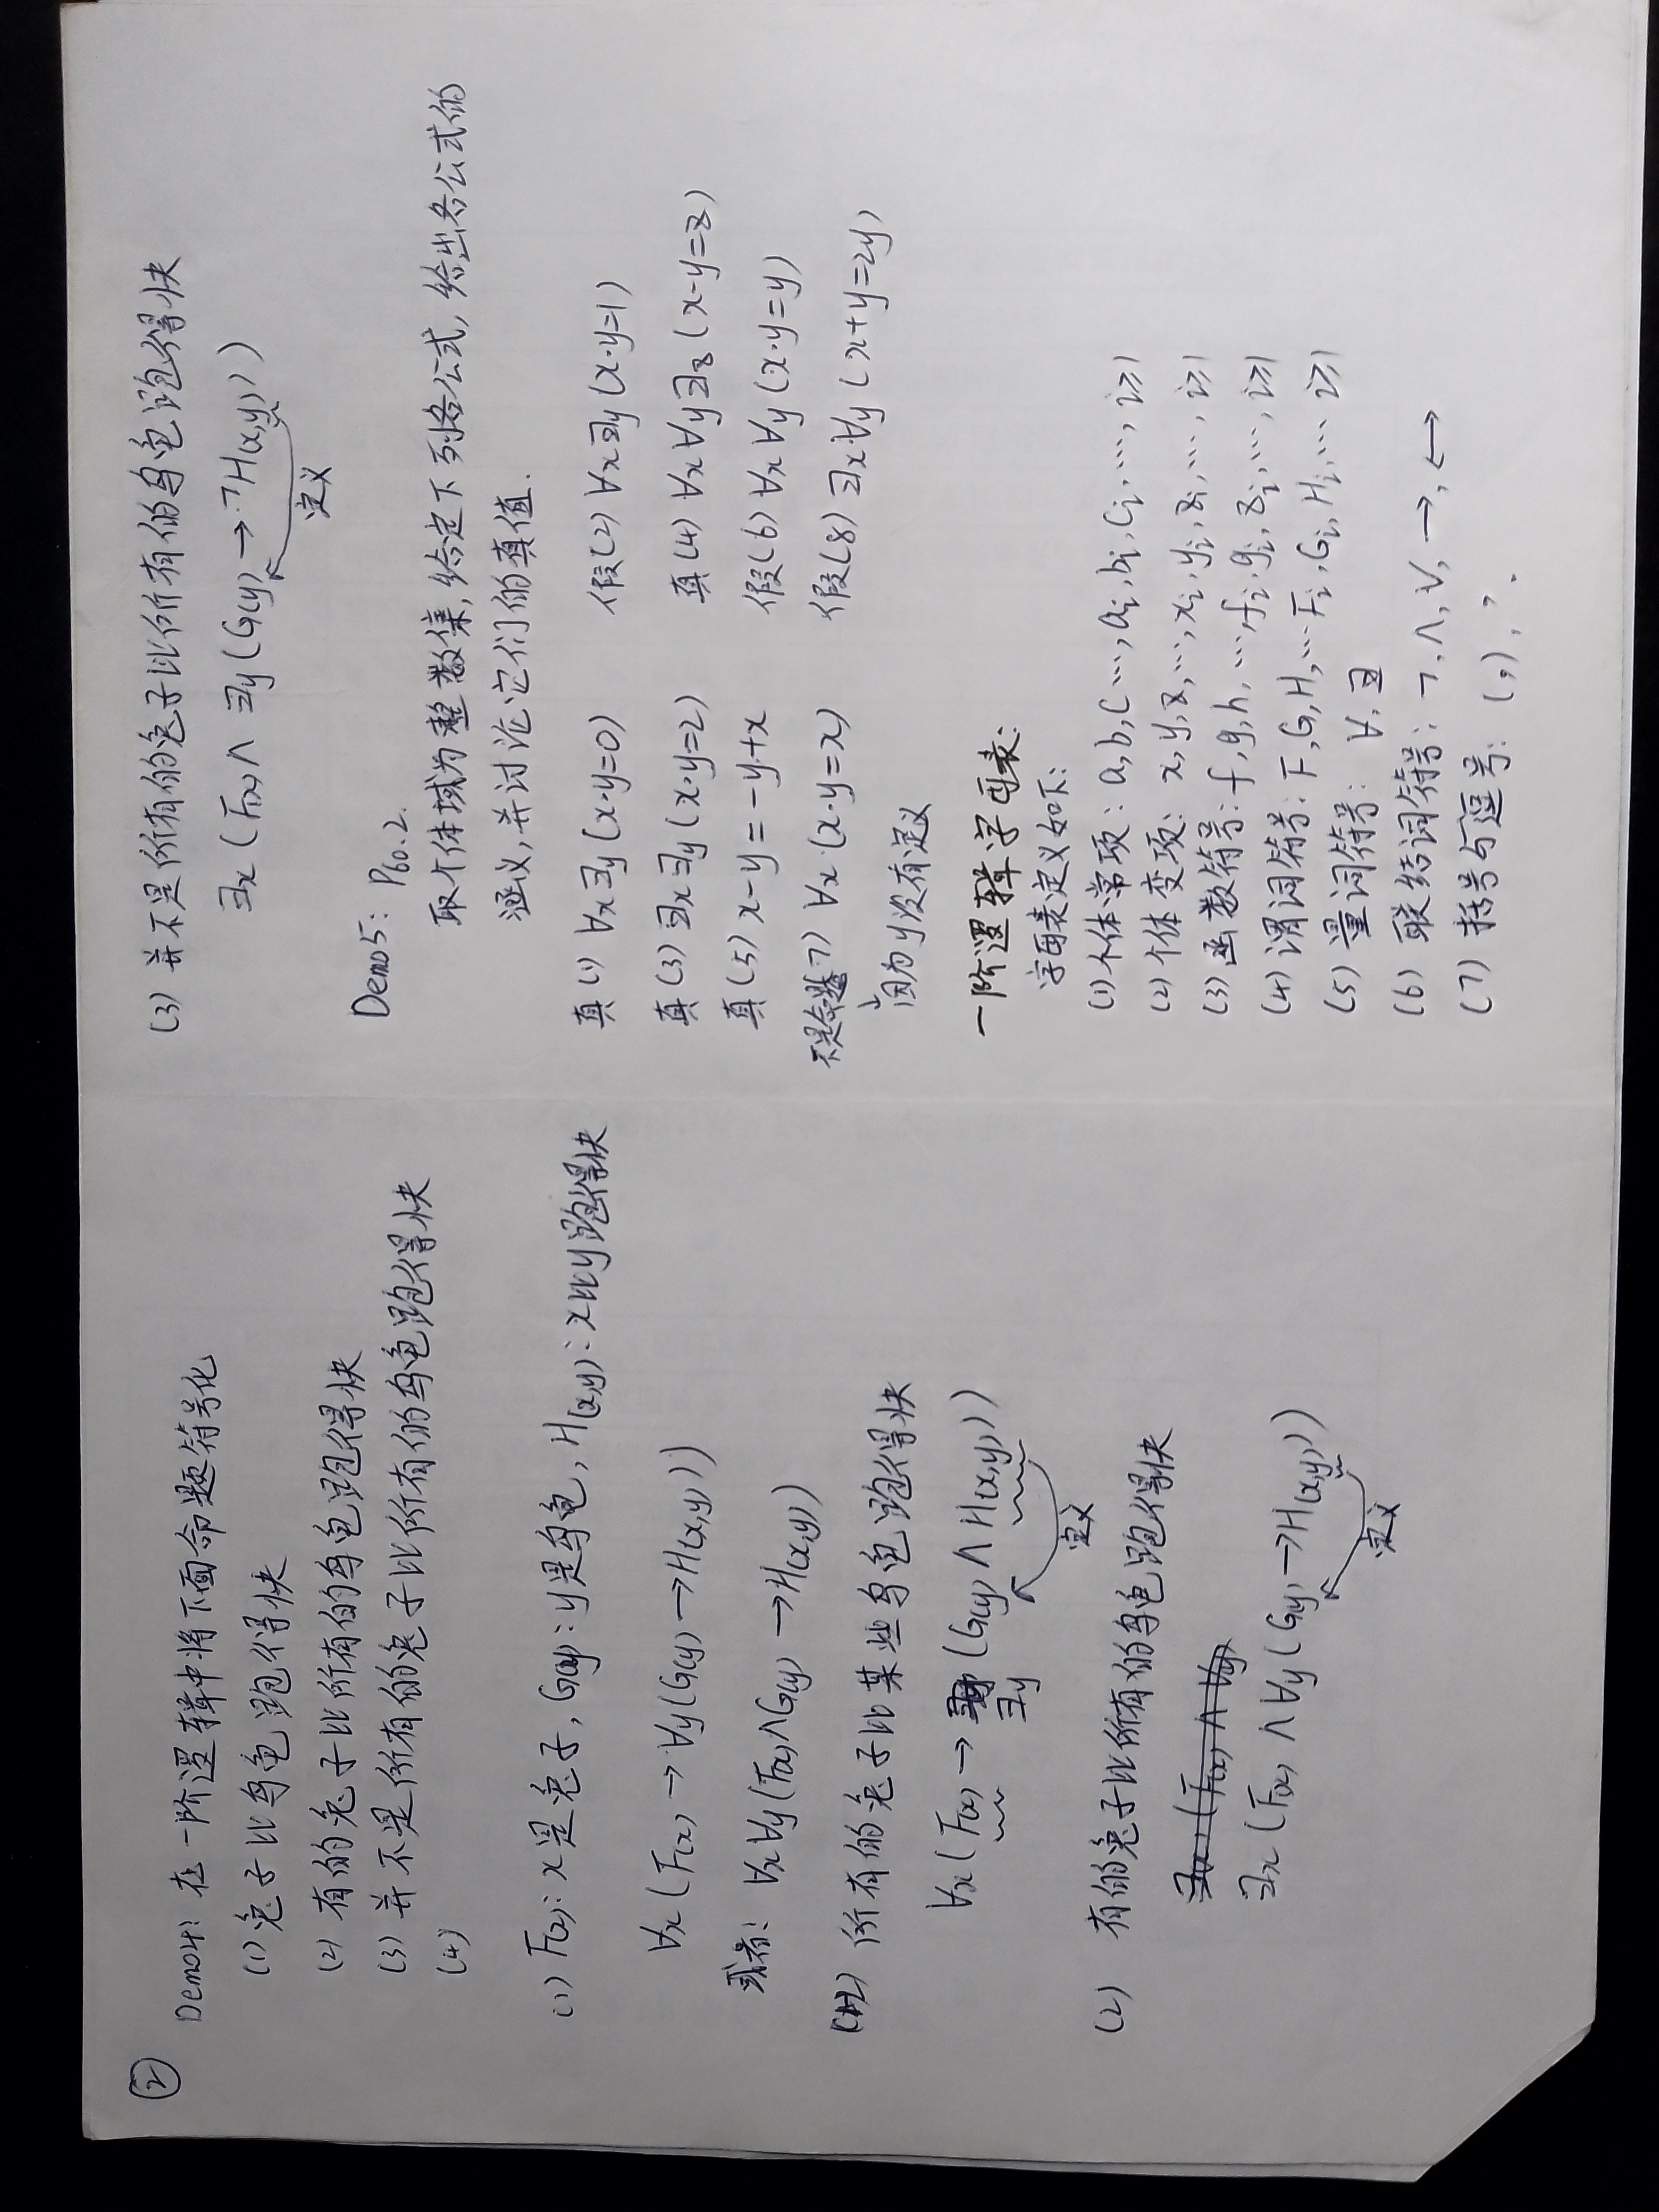 ②
Demo4: 在一阶逻辑中将下面命题符号化
(1) 兔子比乌龟跑得快
(2) 有的兔子比所有的乌龟跑得快
(3) 并不是所有的兔子比所有的乌龟跑得快
(4)
(1) F(x): x是兔子, G(y): y是乌龟, H(x,y): x比y跑得快
∀x (F(x) → ∀y(G(y) → H(x,y)))
或者: ∀x∀y (F(x)∧G(y) → H(x,y))
所有的兔子比某些乌龟跑得快
∀x (F(x) → (G(y) ∧ H(x,y)))
∃y
定义
(2) 有的兔子比所有的乌龟跑得快
∃x (F(x) ∧ ∀y
∃x (F(x) ∧ ∀y (G(y) → H(x,y)))
定义
(3) 并不是所有的兔子比所有的乌龟跑得快
∃x (F(x) ∧ ∃y (G(y) → ¬H(x,y)))
定义
Demo5: P60.2.
取个体域为整数集, 给定下列各公式, 给出各公式的
涵义, 并讨论它们的真值.
真(1) ∀x∃y (x·y=0) 假(2) ∀x∃y (x·y=1)
真(3) ∃x∃y (x·y=2) 真(4) ∀x∀y∃z (x-y=z)
真(5) x-y = -y+x 假(6) ∀x∀y (x·y=y)
不是命题(7) ∀x (x·y=x) 假(8) ∃x∀y (x+y=2y)
↓
因为y没有定义
一阶逻辑字母表:
字母表定义如下:
(1) 个体常项: a, b, c …, ai, bi, ci, …, i≥1
(2) 个体变项: x, y, z, …, xi, yi, zi, …, i≥1
(3) 函数符号: f, g, h, …, fi, gi, zi, …, i≥1
(4) 谓词符号: F, G, H, … Fi, Gi, Hi, … i≥1
(5) 量词符号: ∀, ∃
(6) 联结词符号: ¬, ∧, ∨, →, ↔
(7) 括号与逗号: (,), ,.